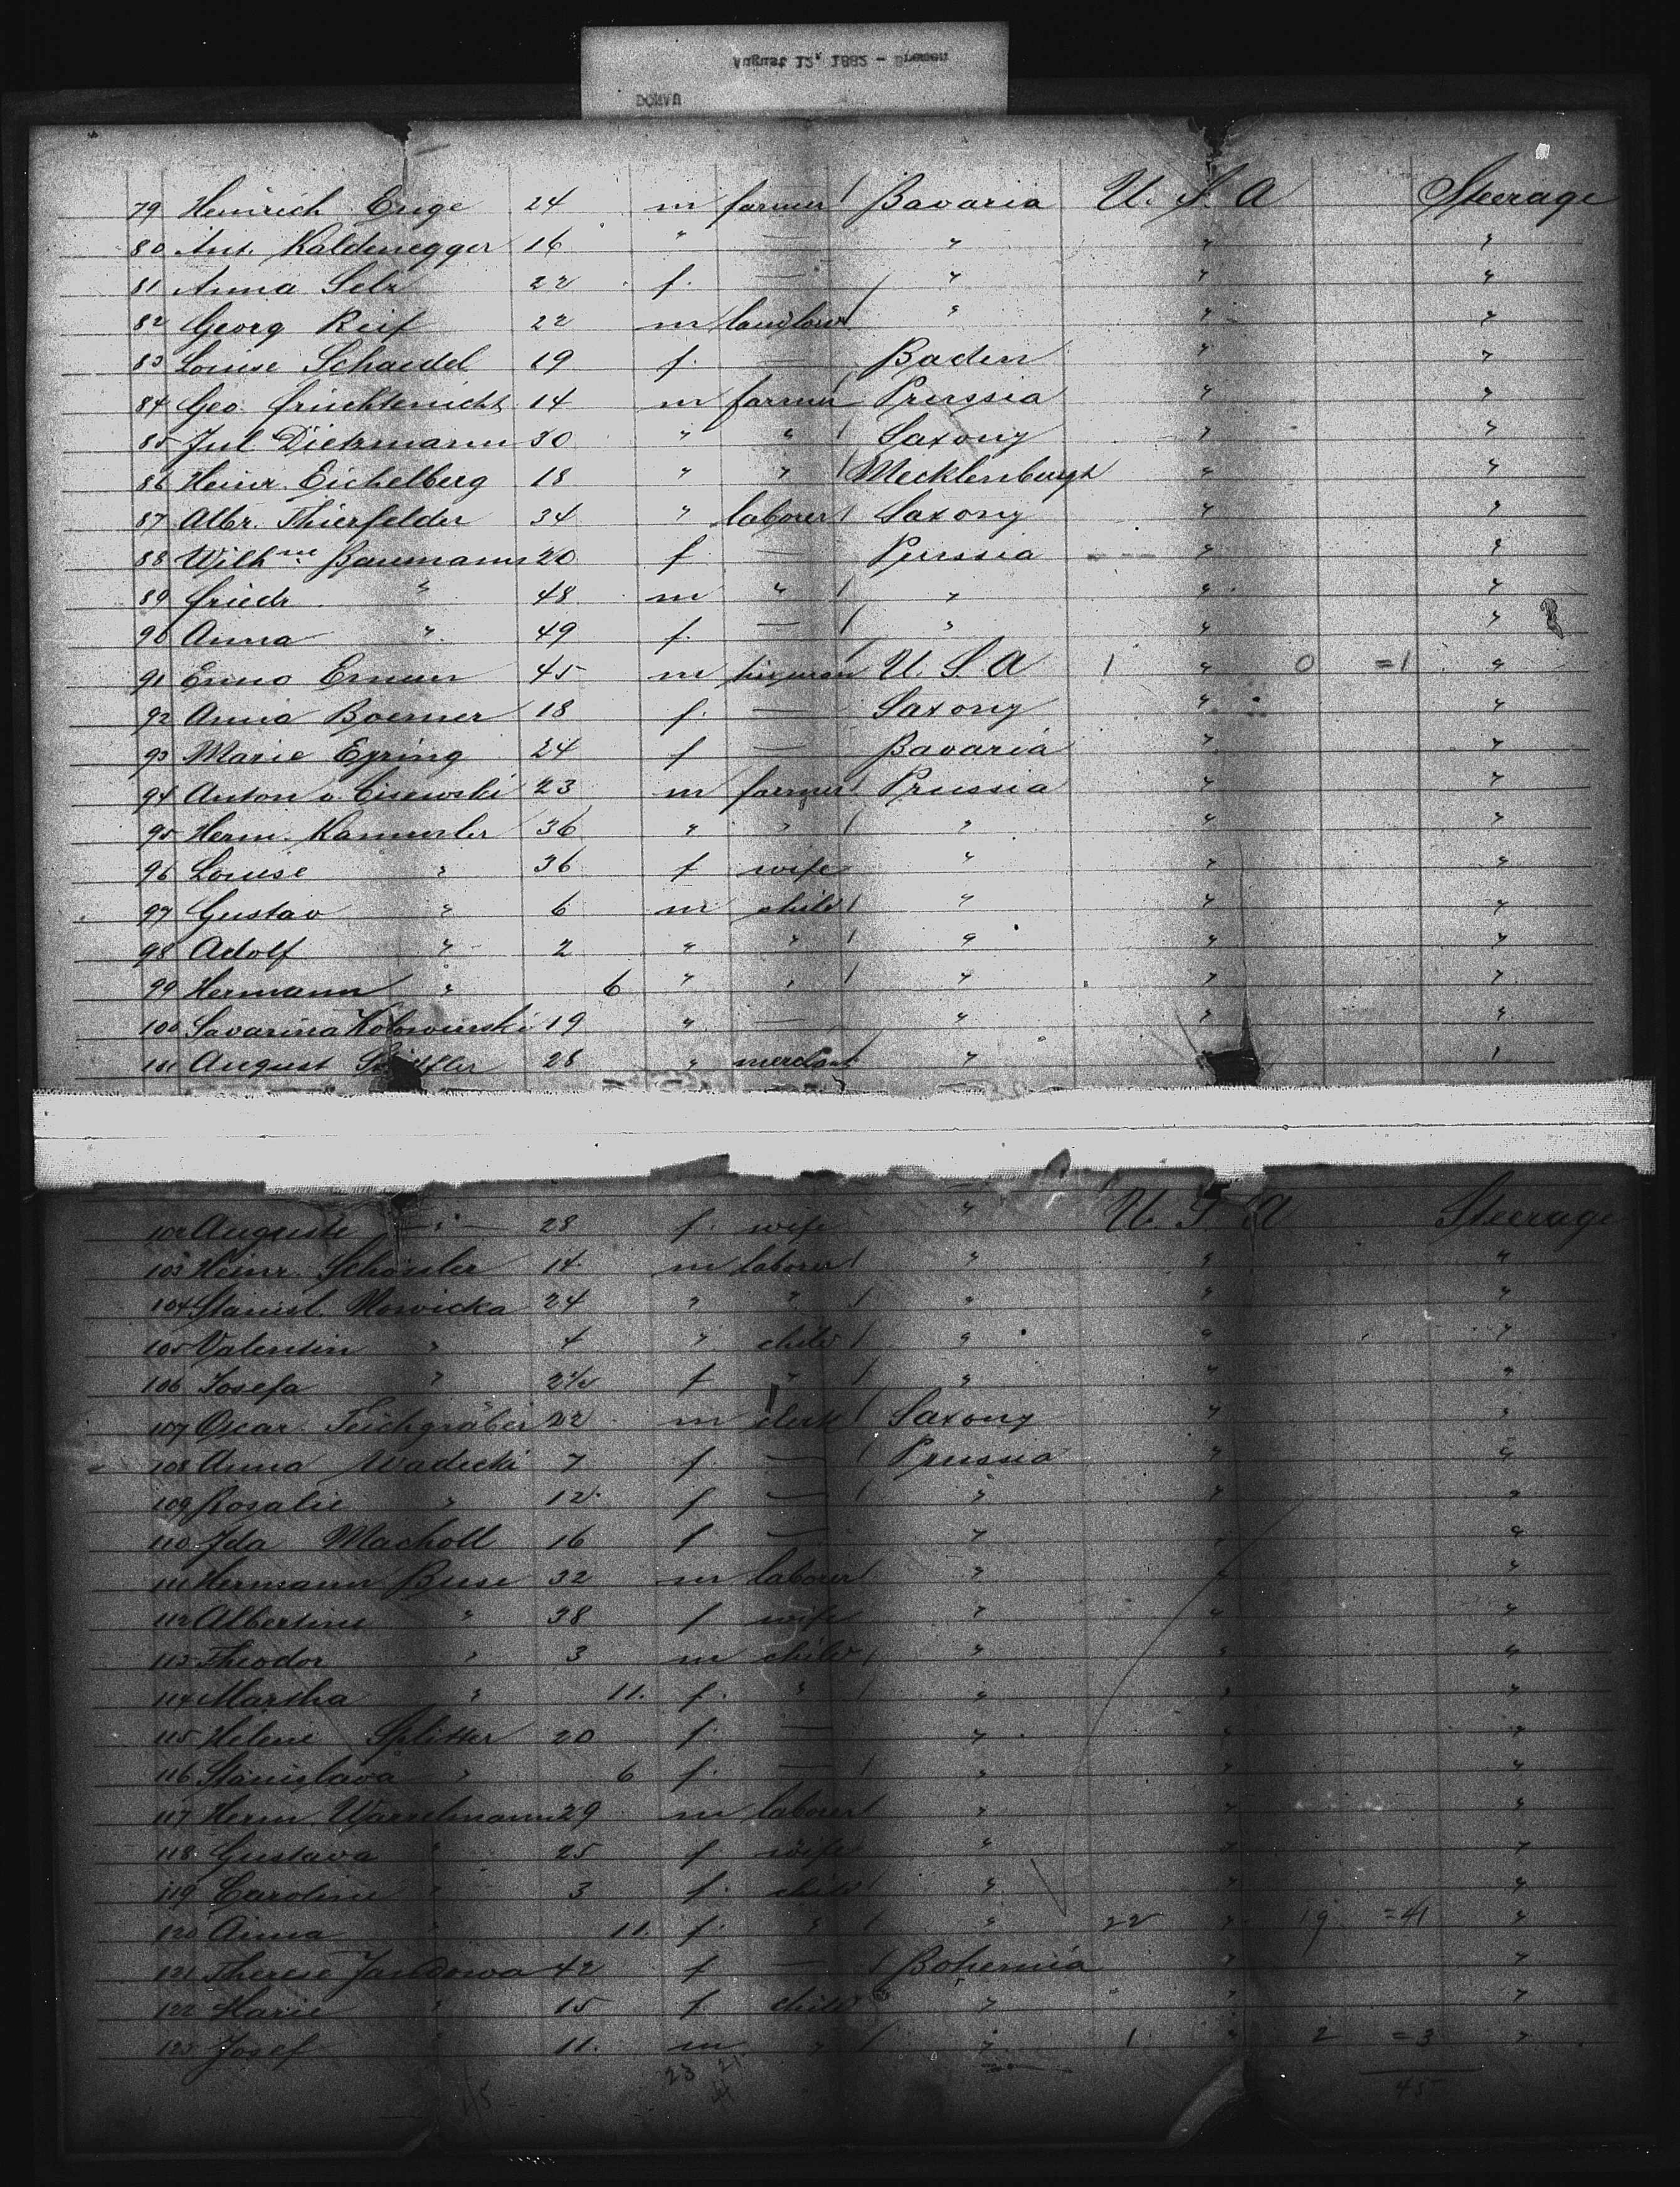 August 12, 1882 - Bremen
DONAU
79 Heinrich Enge 24 m farmer Bavaria U. S. A Steerage
80 Ant. Kaldenegger 16 " — " " "
81 Anna Selz 22 f. — " " "
82 Georg Reif 22 m landlord " " "
83 Louise Schaedel 19 f. — Baden " "
84 Geo. Fruchtenicht 14 m farmer Prussia " "
85 Jul. Dietzmann 30 " " Saxony " "
86 Heinr. Eichelberg 18 " " Mecklenburgh " "
87 Albr. Thierfelder 34 " laborer Saxony " "
88 Wilhme. Baumann 20 f — Prussia " "
89 Friedr. " 48 m " " " "
90 Anna " 49 f. — " " "
91 Enno 45 m U. S. A 1 " 0 =1 "
92 Anna Boerner 18 f. — Saxony " "
93 Marie Eyring 24 f — Bavaria " "
94 Anton v. Cisewski 23 m farmer Prussia " "
95 Herm. 36 " " " " "
96 Louise " 36 f wife " " "
97 Gustav " 6 m child " " "
98 Adolf " 2 " " " " "
99 Hermann " 6 " " " " "
100 Savarina Kolowinski 19 " — " " "
101 August 28 " merchant " "
102 Auguste " 28 f. wife " U. S. A Steerage
103 Heinr. 14 m laborer " " "
104 Stanisl. Nowicka 24 " " " " "
105 Valentin " 4 " child " " "
106 Josefa " 2 1/2 f " " " "
107 Oscar Teichgräber 22 m clerk Saxony " "
108 Anna Wadicki 7 f. — Prussia " "
109 Rosalie " 12 f — " " "
110 Ida Macholl 16 f — " " "
111 Hermann Buse 32 m laborer " " "
112 Albertine " 38 f wife " " "
113 Theodor " 3 m child " " "
114 Martha " 11. f. " " " "
115 Helene Splitter 20 f. — " " "
116 Stanislava " 6 f. — " " "
117 Herm. Wasselmann 29 m laborer " " "
118 Gustava " 25 f. wife " " "
119 Caroline " 3 f. child " " "
120 Anna " 11. f. " " 22 " 19 =41 "
121 Therese Jandowa 42 f — Bohemia " "
122 Marie " 15 f. child " " "
123 Josef " 11. m " " 1 " 2 =3 "
23 21
45